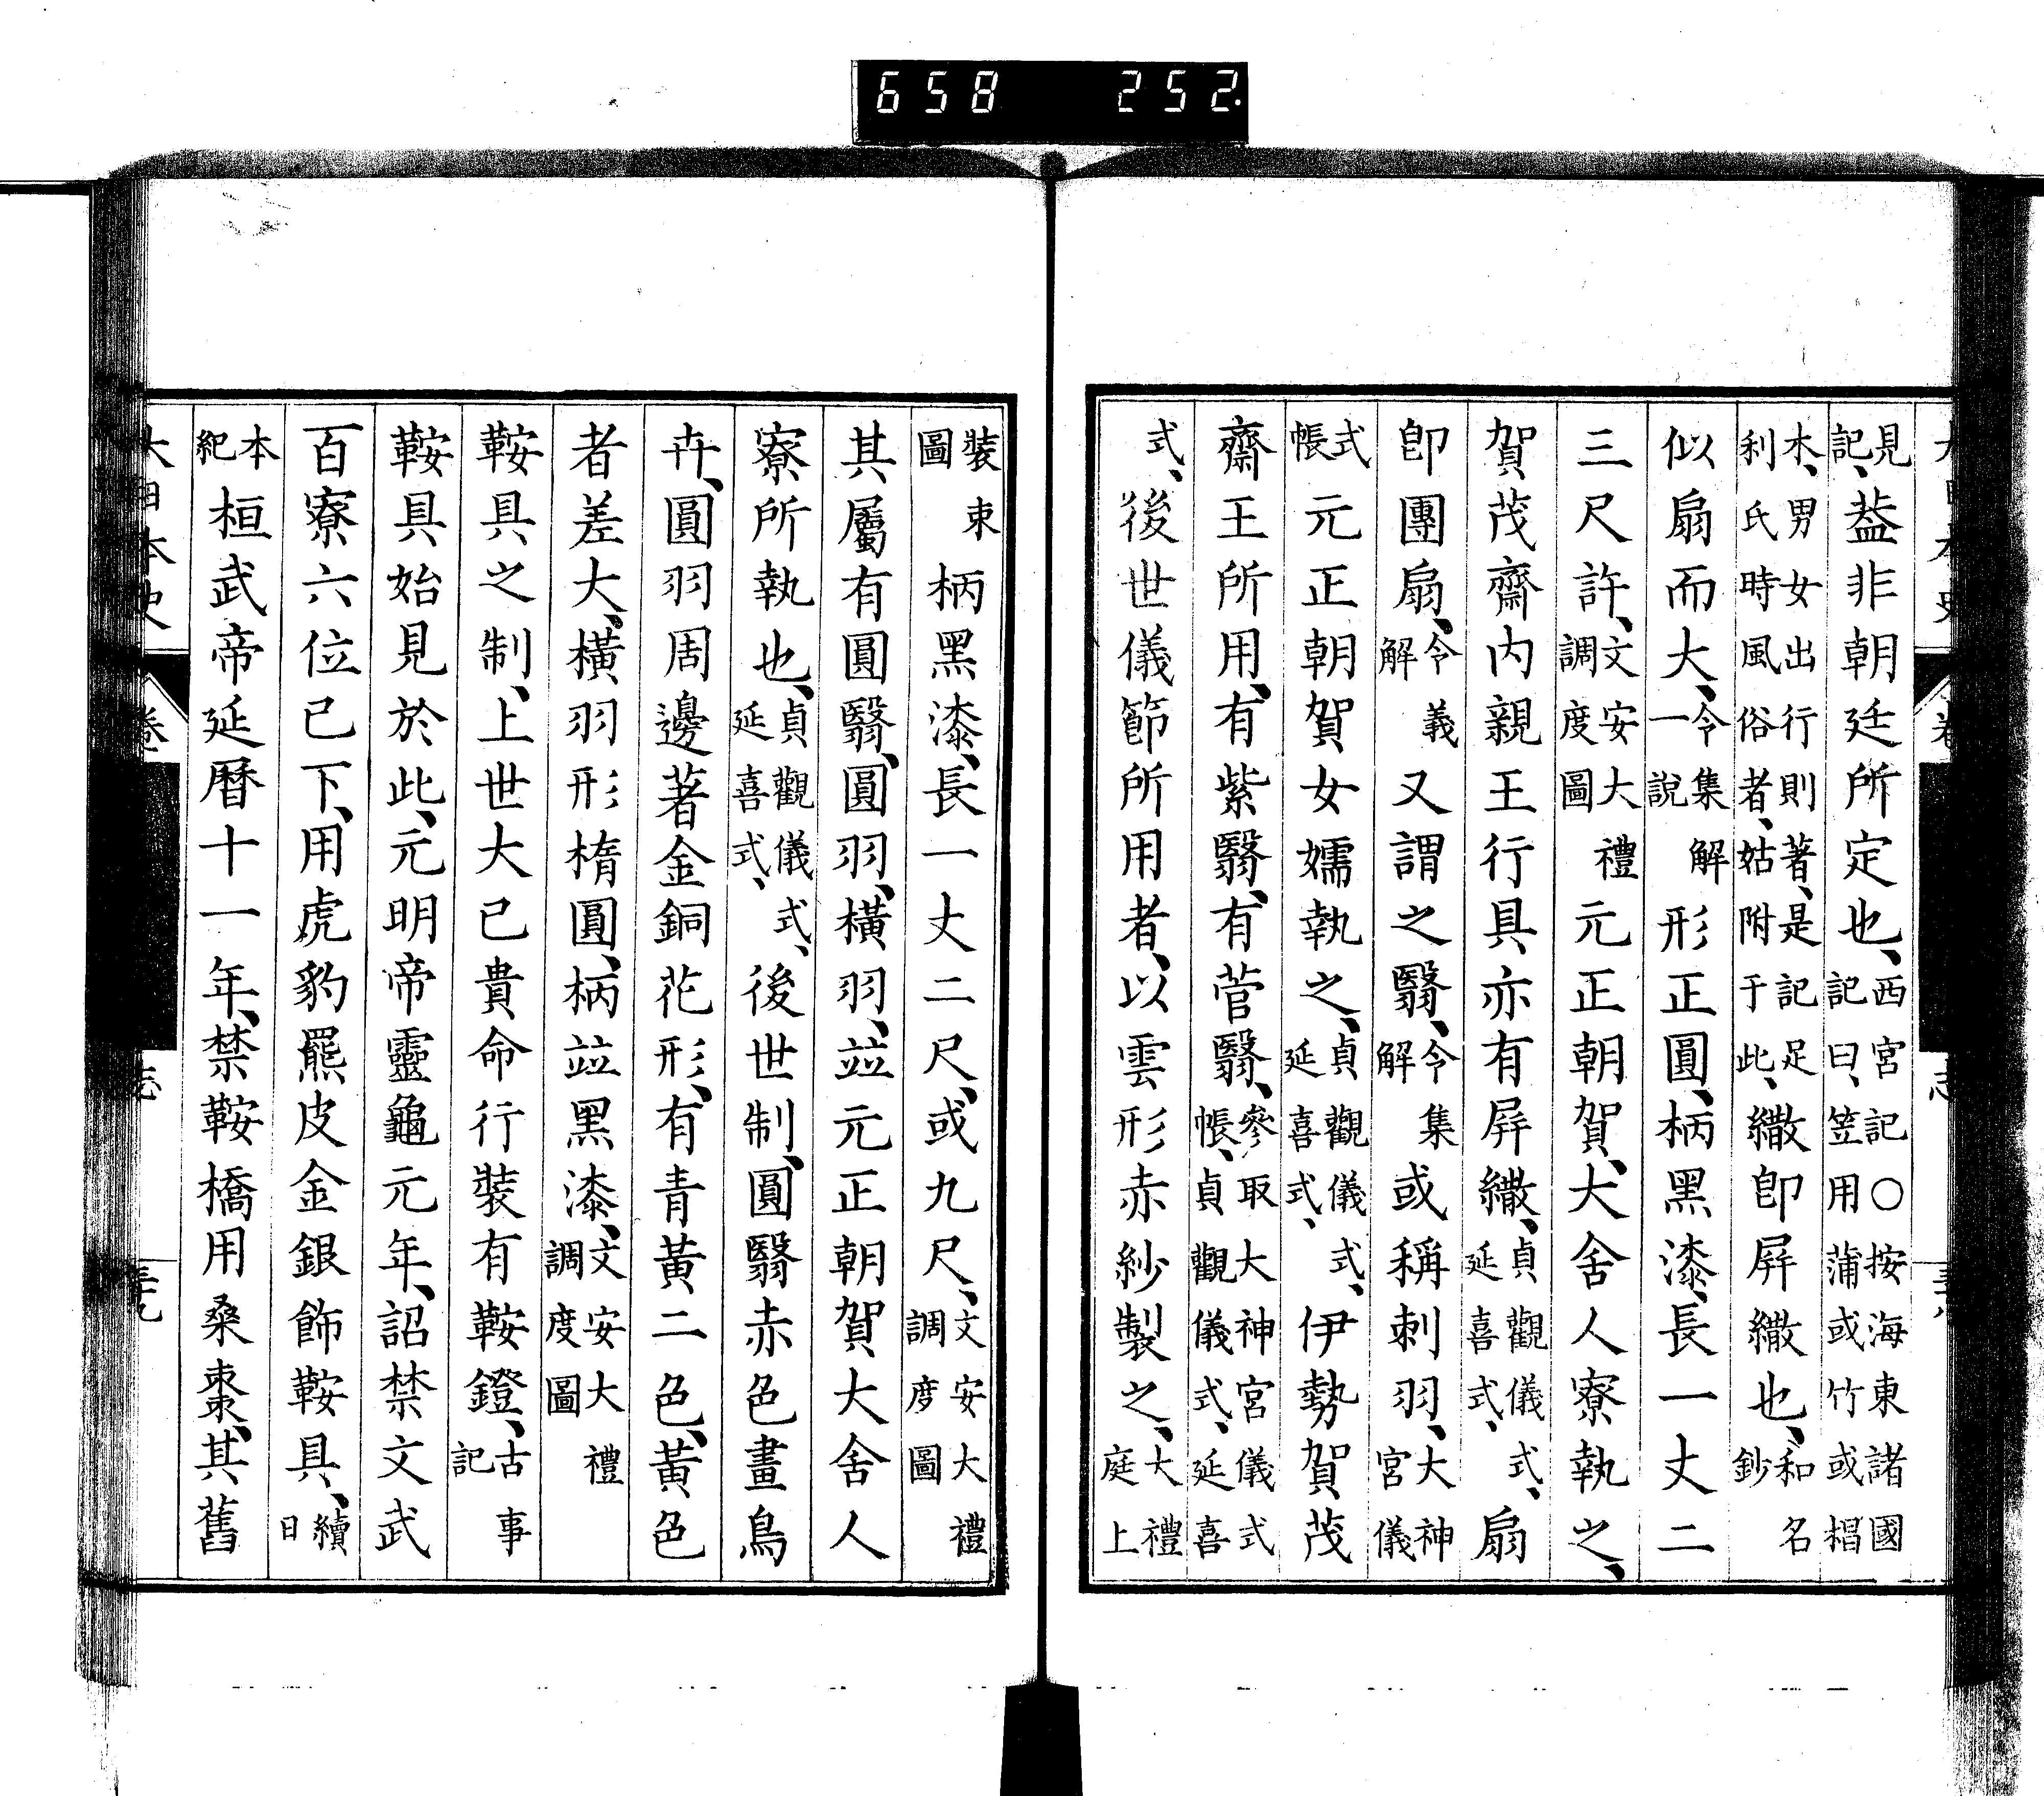 見記、蓋非朝廷所定也、西宮記〇按海東諸國記曰、笠用蒲或竹或椙
木、男女出行則著、是記足利氏時風俗者、姑附于此、繖卽屛繖也、和名鈔
似扇而大、令集解一說形正圓、柄黑漆、長一丈二
三尺許、文安大禮調度圖元正朝賀、大舍人寮執之、
賀茂齋内親王行具、亦有屛繖、貞觀儀式、延喜式、扇
卽團扇、令義解又謂之翳、令集解或稱刺羽、大神宮儀
式帳元正朝賀女嬬執之、貞觀儀式、延喜式、伊勢賀茂
齋王所用、有紫翳、有菅翳、參取大神宮儀式帳、貞觀儀式、延喜
式、後世儀節所用者、以雲形赤紗製之、大禮庭上
裝束圖柄黑漆、長一丈二尺、或九尺、文安大禮調度圖
其屬有圓翳、圓羽、橫羽、竝元正朝賀大舍人
寮所執也、貞觀儀式、延喜式、後世制、圓翳赤色畫鳥
卉、圓羽周邊著金銅花形、有靑黃二色、黃色
者差大、橫羽形楕圓、柄竝黑漆、文安大禮調度圖
鞍具之制、上世大已貴命行裝有鞍鐙、古事記
鞍具始見於此、元明帝靈龜元年、詔禁文武
百寮六位已下、用虎豹羆皮金銀飾鞍具、續日
本紀桓武帝延曆十一年、禁鞍橋用桑棗、其舊
大日本史 卷 志 三十九
658 252.